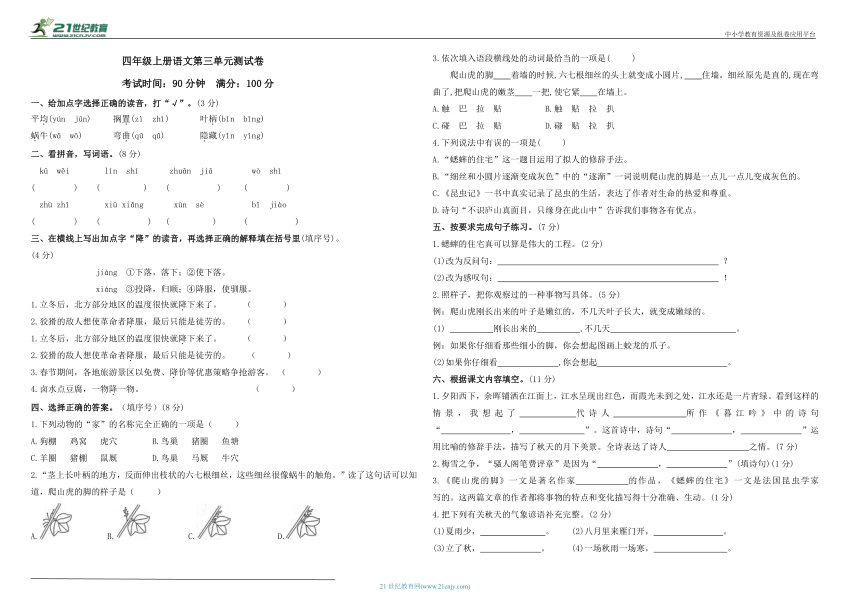 21世纪教育
www.21cnjy.com
中小学教育资源及组卷应用平台
四年级上册语文第三单元测试卷
考试时间：90分钟 满分：100分
一、给加点字选择正确的读音，打“√”。(3分)
平均(yún jūn) 搁置(zì zhì) 叶柄(bǐn bǐng)
蜗牛(wā wō) 弯曲(qū qǔ) 隐藏(yǐn yǐng)
二、看拼音，写词语。(8分)
kū wěi lín shí zhuǎn jiǎ wò shì
( ) ( ) ( ) ( )
zhù zhǐ xiū xiǎng xùn sè bǐ jiào
( ) ( ) ( ) ( )
三、在横线上写出加点字“降”的读音，再选择正确的解释填在括号里(填序号)。
(4分)
jiàng ①下落，落下；②使下落。
xiáng ③投降，归顺；④降服，使驯服。
1.立冬后，北方部分地区的温度很快就降下来了。 ( )
2.狡猾的敌人想使革命者降服，最后只能是徒劳的。 ( )
1.立冬后，北方部分地区的温度很快就降下来了。 ( )
2.狡猾的敌人想使革命者降服，最后只能是徒劳的。 ( )
3.春节期间，各地旅游景区以免费、降价等优惠策略争抢游客。 ( )
4.卤水点豆腐，一物降一物。 ( )
四、选择正确的答案。（填序号）(8分)
1.下列动物的“家”的名称完全正确的一项是( )
A.狗棚 鸡窝 虎穴 B.鸟巢 猪圈 鱼塘
C.羊圈 猪棚 鼠厩 D.鸟巢 马厩 牛穴
2.“茎上长叶柄的地方，反面伸出枝状的六七根细丝，这些细丝很像蜗牛的触角。”读了这句话可以知
道，爬山虎的脚的样子是( )
A. B. C. D.
3.依次填入语段横线处的动词最恰当的一项是( )
爬山虎的脚____着墙的时候,六七根细丝的头上就变成小圆片,____住墙。细丝原先是直的,现在弯
曲了,把爬山虎的嫩茎____一把,使它紧____在墙上。
A.触 巴 拉 贴 B.触 贴 拉 扒
C.碰 巴 拉 贴 D.碰 贴 拉 扒
4.下列说法中有误的一项是( )
A.“蟋蟀的住宅”这一题目运用了拟人的修辞手法。
B.“细丝和小圆片逐渐变成灰色”中的“逐渐”一词说明爬山虎的脚是一点儿一点儿变成灰色的。
C.《昆虫记》一书中真实记录了昆虫的生活，表达了作者对生命的热爱和尊重。
D.诗句“不识庐山真面目，只缘身在此山中”告诉我们事物各有优点。
五、按要求完成句子练习。(7分)
1.蟋蟀的住宅真可以算是伟大的工程。(2分)
(1)改为反问句：____________________？
(2)改为感叹句：____________________！
2.照样子，把你观察过的一种事物写具体。(5分)
例：爬山虎刚长出来的叶子是嫩红的，不几天叶子长大，就变成嫩绿的。
(1) ________刚长出来的________,不几天____________________。
例：如果你仔细看那些细小的脚，你会想起图画上蛟龙的爪子。
(2)如果你仔细看____________,你会想起____________________。
六、根据课文内容填空。(11分)
1.夕阳西下，余晖铺洒在江面上，江水呈现出红色，而霞光未到之处，江水还是一片青绿。看到这样的
情景，我想起了__________代诗人____________所作《暮江吟》中的诗句
“____________，____________”。这首诗中，诗句“____________，____________”运
用比喻的修辞手法，描写了秋天的月下美景。全诗表达了诗人______________之情。(7分)
2.梅雪之争，“骚人阁笔费评章”是因为“____________，____________”(填诗句)(1分)
3.《爬山虎的脚》一文是著名作家__________的作品。《蟋蟀的住宅》一文是法国昆虫学家
写的。这两篇文章的作者都将事物的特点和变化描写得十分准确、生动。(1分)
4.把下列有关秋天的气象谚语补充完整。(2分)
(1)夏雨少，____________。 (2)八月里来雁门开，____________。
(3)立了秋，____________。 (4)一场秋雨一场寒，____________。
21世纪教育网(www.21cnjy.com)